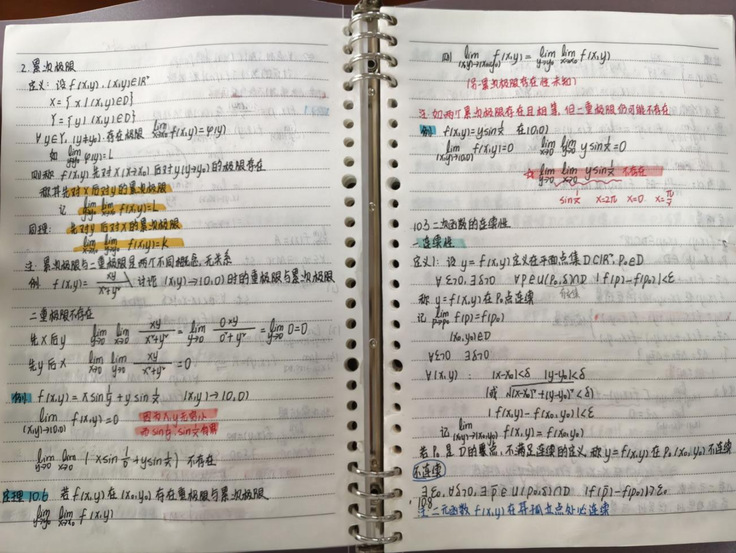 2. 累次极限
定义: 设 f(x,y), (x,y)∈D
X={x | (x,y)∈D}
Y={y | (x,y)∈D}
∀y∈Y, (y≠y₀) 存在极限 lim x→x₀ f(x,y)=φ(y)
如 lim y→y₀ φ(y)=L
则称 f(x,y) 先对x(x→x₀)后对y(y→y₀)的极限存在
称其先对x后对y的累次极限
记 lim y→y₀ lim x→x₀ f(x,y)=L
同理: 先对y后对x的累次极限
lim x→x₀ lim y→y₀ f(x,y)=K
注: 累次极限与二重极限是两个不同概念,无关系
例 f(x,y)= xy/(x²+y²) 讨论(x,y)→(0,0)时的重极限与累次极限
二重极限不存在
先x后y lim y→0 lim x→0 xy/(x²+y²) = lim y→0 0·y/(0²+y²) = lim y→0 0=0
先y后x lim x→0 lim y→0 xy/(x²+y²) =0
例 f(x,y)= x sin 1/y + y sin 1/x (x,y)→(0,0)
lim (x,y)→(0,0) f(x,y)=0 因为x,y无穷小
而 sin 1/y, sin 1/x 有界
lim y→0 lim x→0 (x sin 1/y + y sin 1/x) 不存在
定理10.6 若 f(x,y) 在(x₀,y₀) 存在重极限与累次极限
lim y→y₀ lim x→x₀ f(x,y)
则 lim (x,y)→(x₀,y₀) f(x,y)= lim y→y₀ lim x→x₀ f(x,y)
(另一累次极限存在性未知)
注: 如两个累次极限存在且相等, 但二重极限仍可能不存在
例 f(x,y)=y sin 1/x 在(0,0)
lim (x,y)→(0,0) f(x,y)=0 lim x→0 lim y→0 y sin 1/x =0
☆ lim y→0 lim x→0 y sin 1/x 不存在
10.3 二次函数的连续性
一连续性
定义1: 设 y=f(x,y)定义在平面点集D⊂R², P₀∈D
∀ε>0, ∃δ>0 ∀P∈U(P₀,δ)∩D |f(P)-f(P₀)|<ε
称 y=f(x,y) 在P₀点连续
记 lim P→P₀ f(P)=f(P₀)
(x₀,y₀)∈D
∀ε>0 ∃δ>0
∀(x,y): |x-x₀|<δ |y-y₀|<δ
(或 √((x-x₀)²+(y-y₀)²)<δ)
|f(x,y)-f(x₀,y₀)|<ε
记 lim (x,y)→(x₀,y₀) f(x,y)=f(x₀,y₀)
若P₀是D的聚点,不满足连续的定义,称 y=f(x,y)在P₀(x₀,y₀)不连续
不连续
∃ε₀, ∀δ>0, ∃p̄∈U(P₀,δ)∩D |f(p̄)-f(P₀)|≥ε₀
108
注 二元函数f(x,y)在其孤立点处必连续